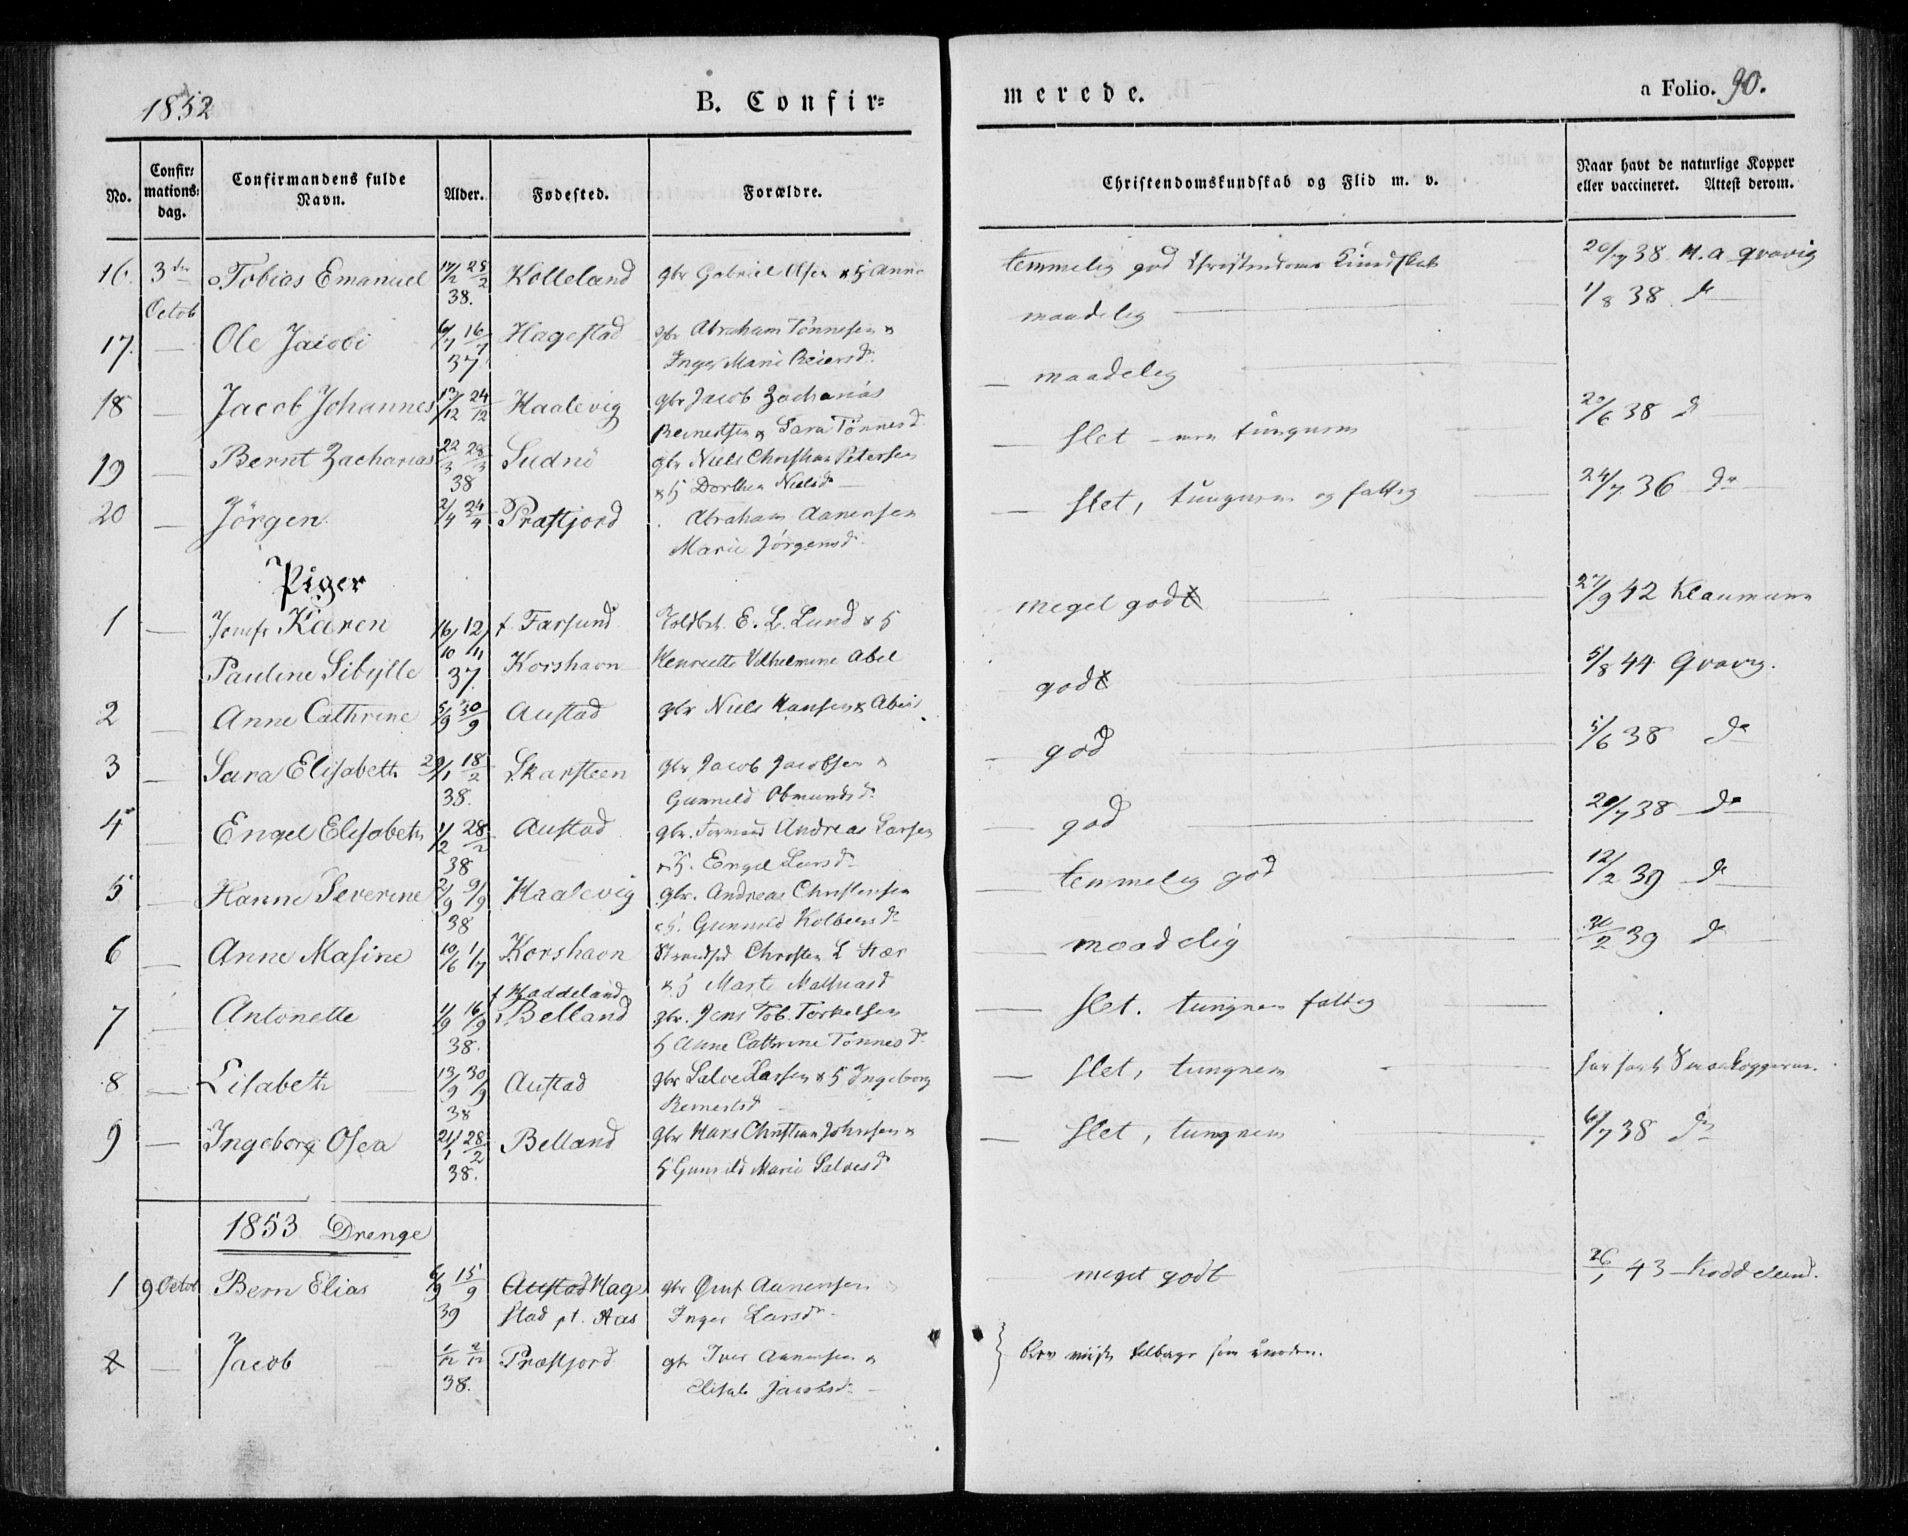 1852
B. Confir=
merede.
a Folio. 90.
No.
Confir=
mations=
dag.
Confirmandens fulde
Navn.
Alder.
Fødested.
Forældre.
Christendomskundskab og Flid m. v.
Naar havt de naturlige Kopper
eller vaccineret. Attest derom.
16. 3die Tobias Emanuel 25/2 Kolleland gbr Gabriel Olsen & Anne temmelig god Christendoms Kundskab 20/7 38.
Octob 38. 1/8 38 do
17. — Ole Jacobi 6/7 16/7 Hagestad gbr Abraham Tønnesen & maadelig
37. Inger Marie Reiersd. — maadelig
18 — Jacob Johannes 24/12 Haalevig gbr Jacob Zacharias
Reinertsen & Sara Tønnesd. — slet — tungnem 38 do
19 — Bernt Zacharias 22/3 28/3 Sudnø gbr Niels Christian Petersen
38 & H Dorthea Nielsd. — slet, tungnem og fattig 24/7 36 do
20 — Jörgen 2/4 24/4 Præstfjord Abraham Aanensen
Marie Jørgensd.
Piger
1 — Jomfr Karen 16/10 12/11 f. Farsund Toldbet. E. L. Lund & H meget god 27/9 42 Klaumann
Pauline Sibylle 37. Korshavn Henriette Vilhelmine Abel god 5/8 44 Qvavig.
2 — Anne Cathrine 5/9 30/9 Austad gbr Niels Hansen & — god 5/6 38 do
3 — Sara Elisabeth 29/1 18/2 Skarsteen gbr Jacob Jacobsen &
38. Gunneld Obmundsd. — god 20/7 38 do
4 — Engel Elisabeth 1/2 28/2 Austad gbr. Andreas Larsen
38 & H. Engel Larsd. — temmelig god 12/2 39 do
5 — Hanne Severine 2/9 9/9 Haalevig gbr. Andreas Christensen
38 & H. Gunneld Kolbensd. — maadelig 39 do
6 — Anne Masine 10/6 1/7 Korshavn Strandsd Christen L Stær
& H Marte Mathiasd — slet. tungnem fattig
7 — Antonette 1/9 16/9 f Haddeland gbr. Jens Tob. Torkelsen
38. Belland H Anne Cathrine Tønnesd. — slet, tungnem
8 — Lisabeth 13/9 30/9 Austad gbr Salve Larsen & H Ingeborg
38 Reinertsd — slet, tungnem 6/7 38 do
9 — Ingeborg Osea 21/1 28/2 Belland gbr Hans Christian Johnsen &
38. H Gunild Marie Salvesd.
1853 Drenge
1 9 Octob Bern Elias 6/9 15/9 Austad Hage gbr Aanensen meget godt 26/1 43 — Kaddeland.
39 stad pt. Aas Inger Larsd.
2 — Jacob 1/12 2/12 Præstfjord gbr Iver Aanensen & tilbage som
38. Elisab Jacobsd. —